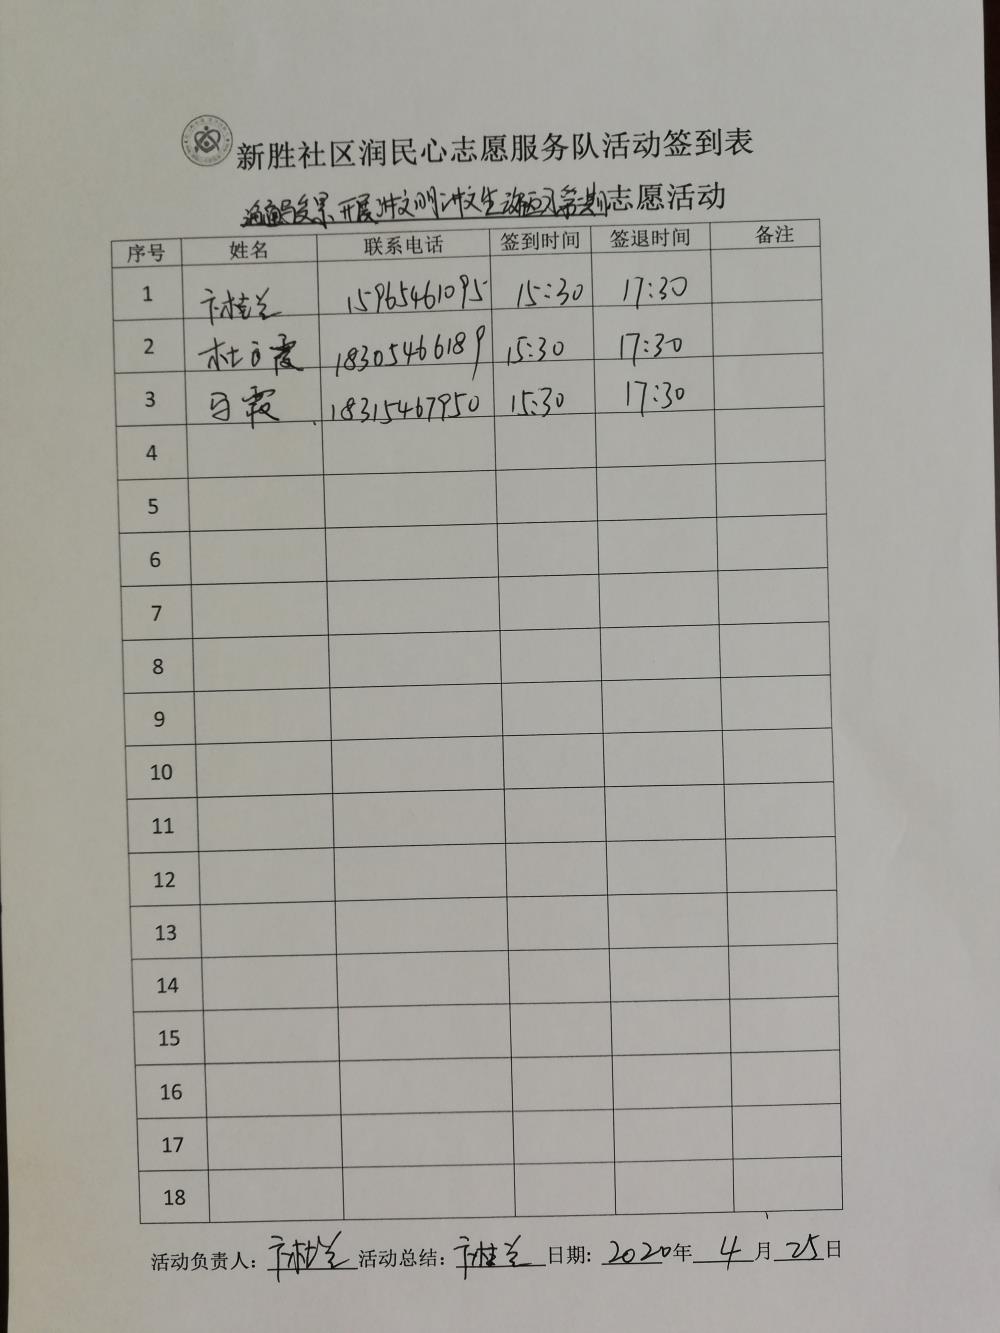 新胜社区润民心志愿服务队活动签到表
开展讲文明讲卫生 志愿活动
序号 姓名 联系电话 签到时间 签退时间 备注
1 卞桂兰 15965461095 15:30 17:30
2 杜 霞 18305466189 15:30 17:30
3 马霞 18315467950 15:30 17:30
4
5
6
7
8
9
10
11
12
13
14
15
16
17
18
活动负责人: 卞桂兰 活动总结: 卞桂兰 日期: 2020 年 4 月 25 日